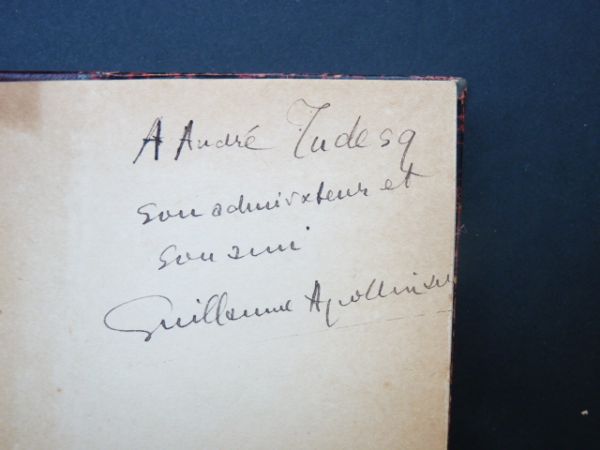 A André Tudesq
son admirateur et
son ami
Guillaume Apollinaire